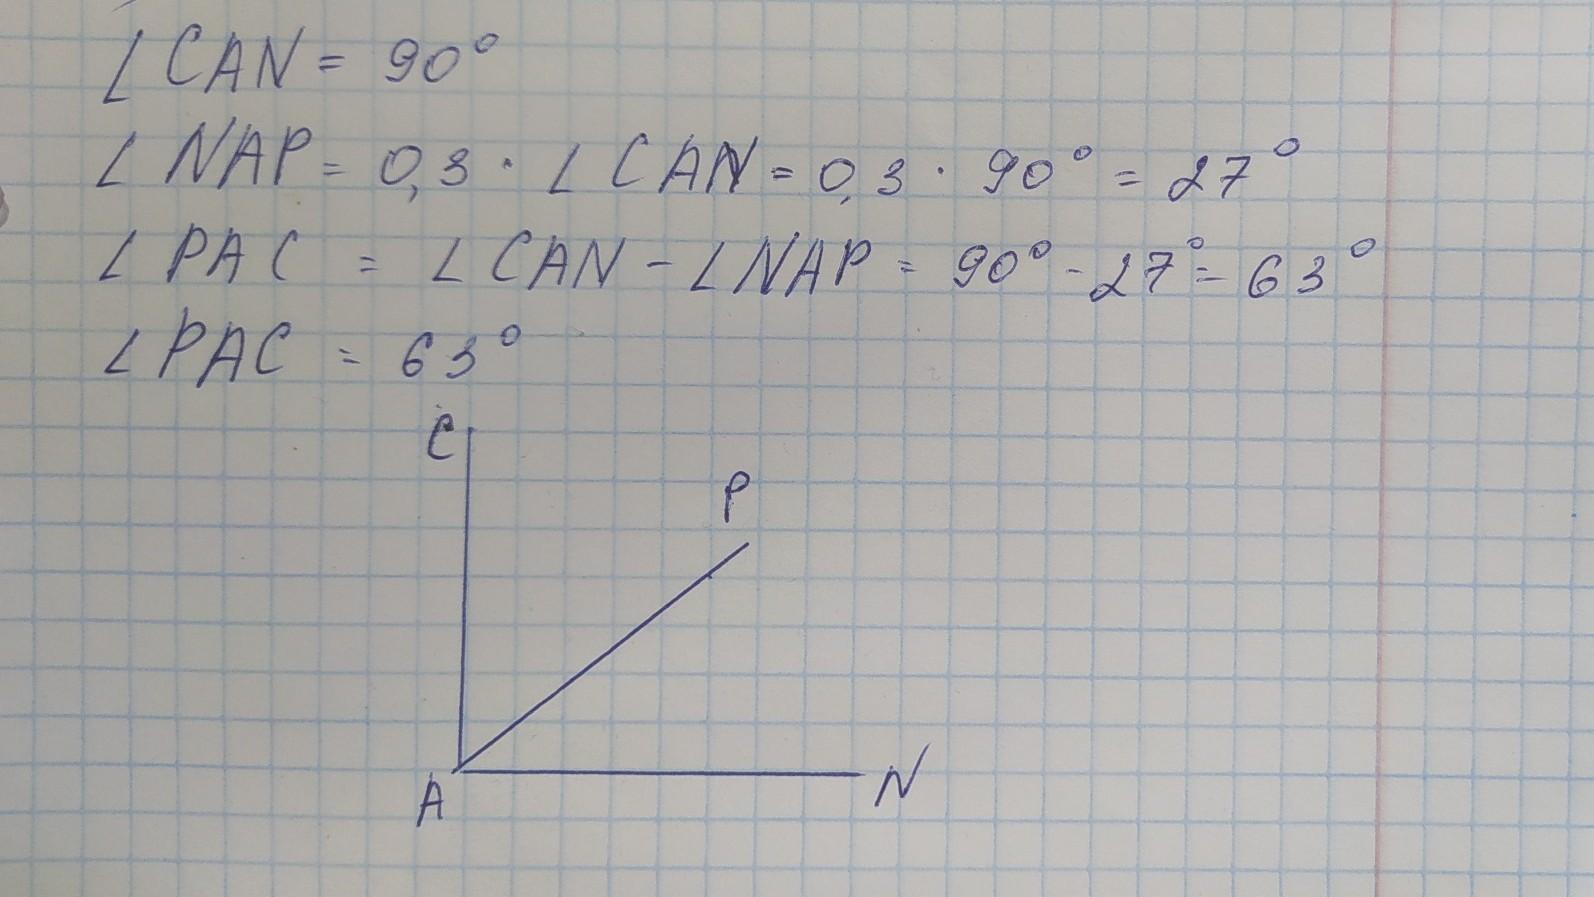 ∠CAN = 90°
∠NAP = 0,3 · ∠CAN = 0,3 · 90° = 27°
∠PAC = ∠CAN - ∠NAP = 90° - 27° = 63°
∠PAC = 63°
C
P
A
N